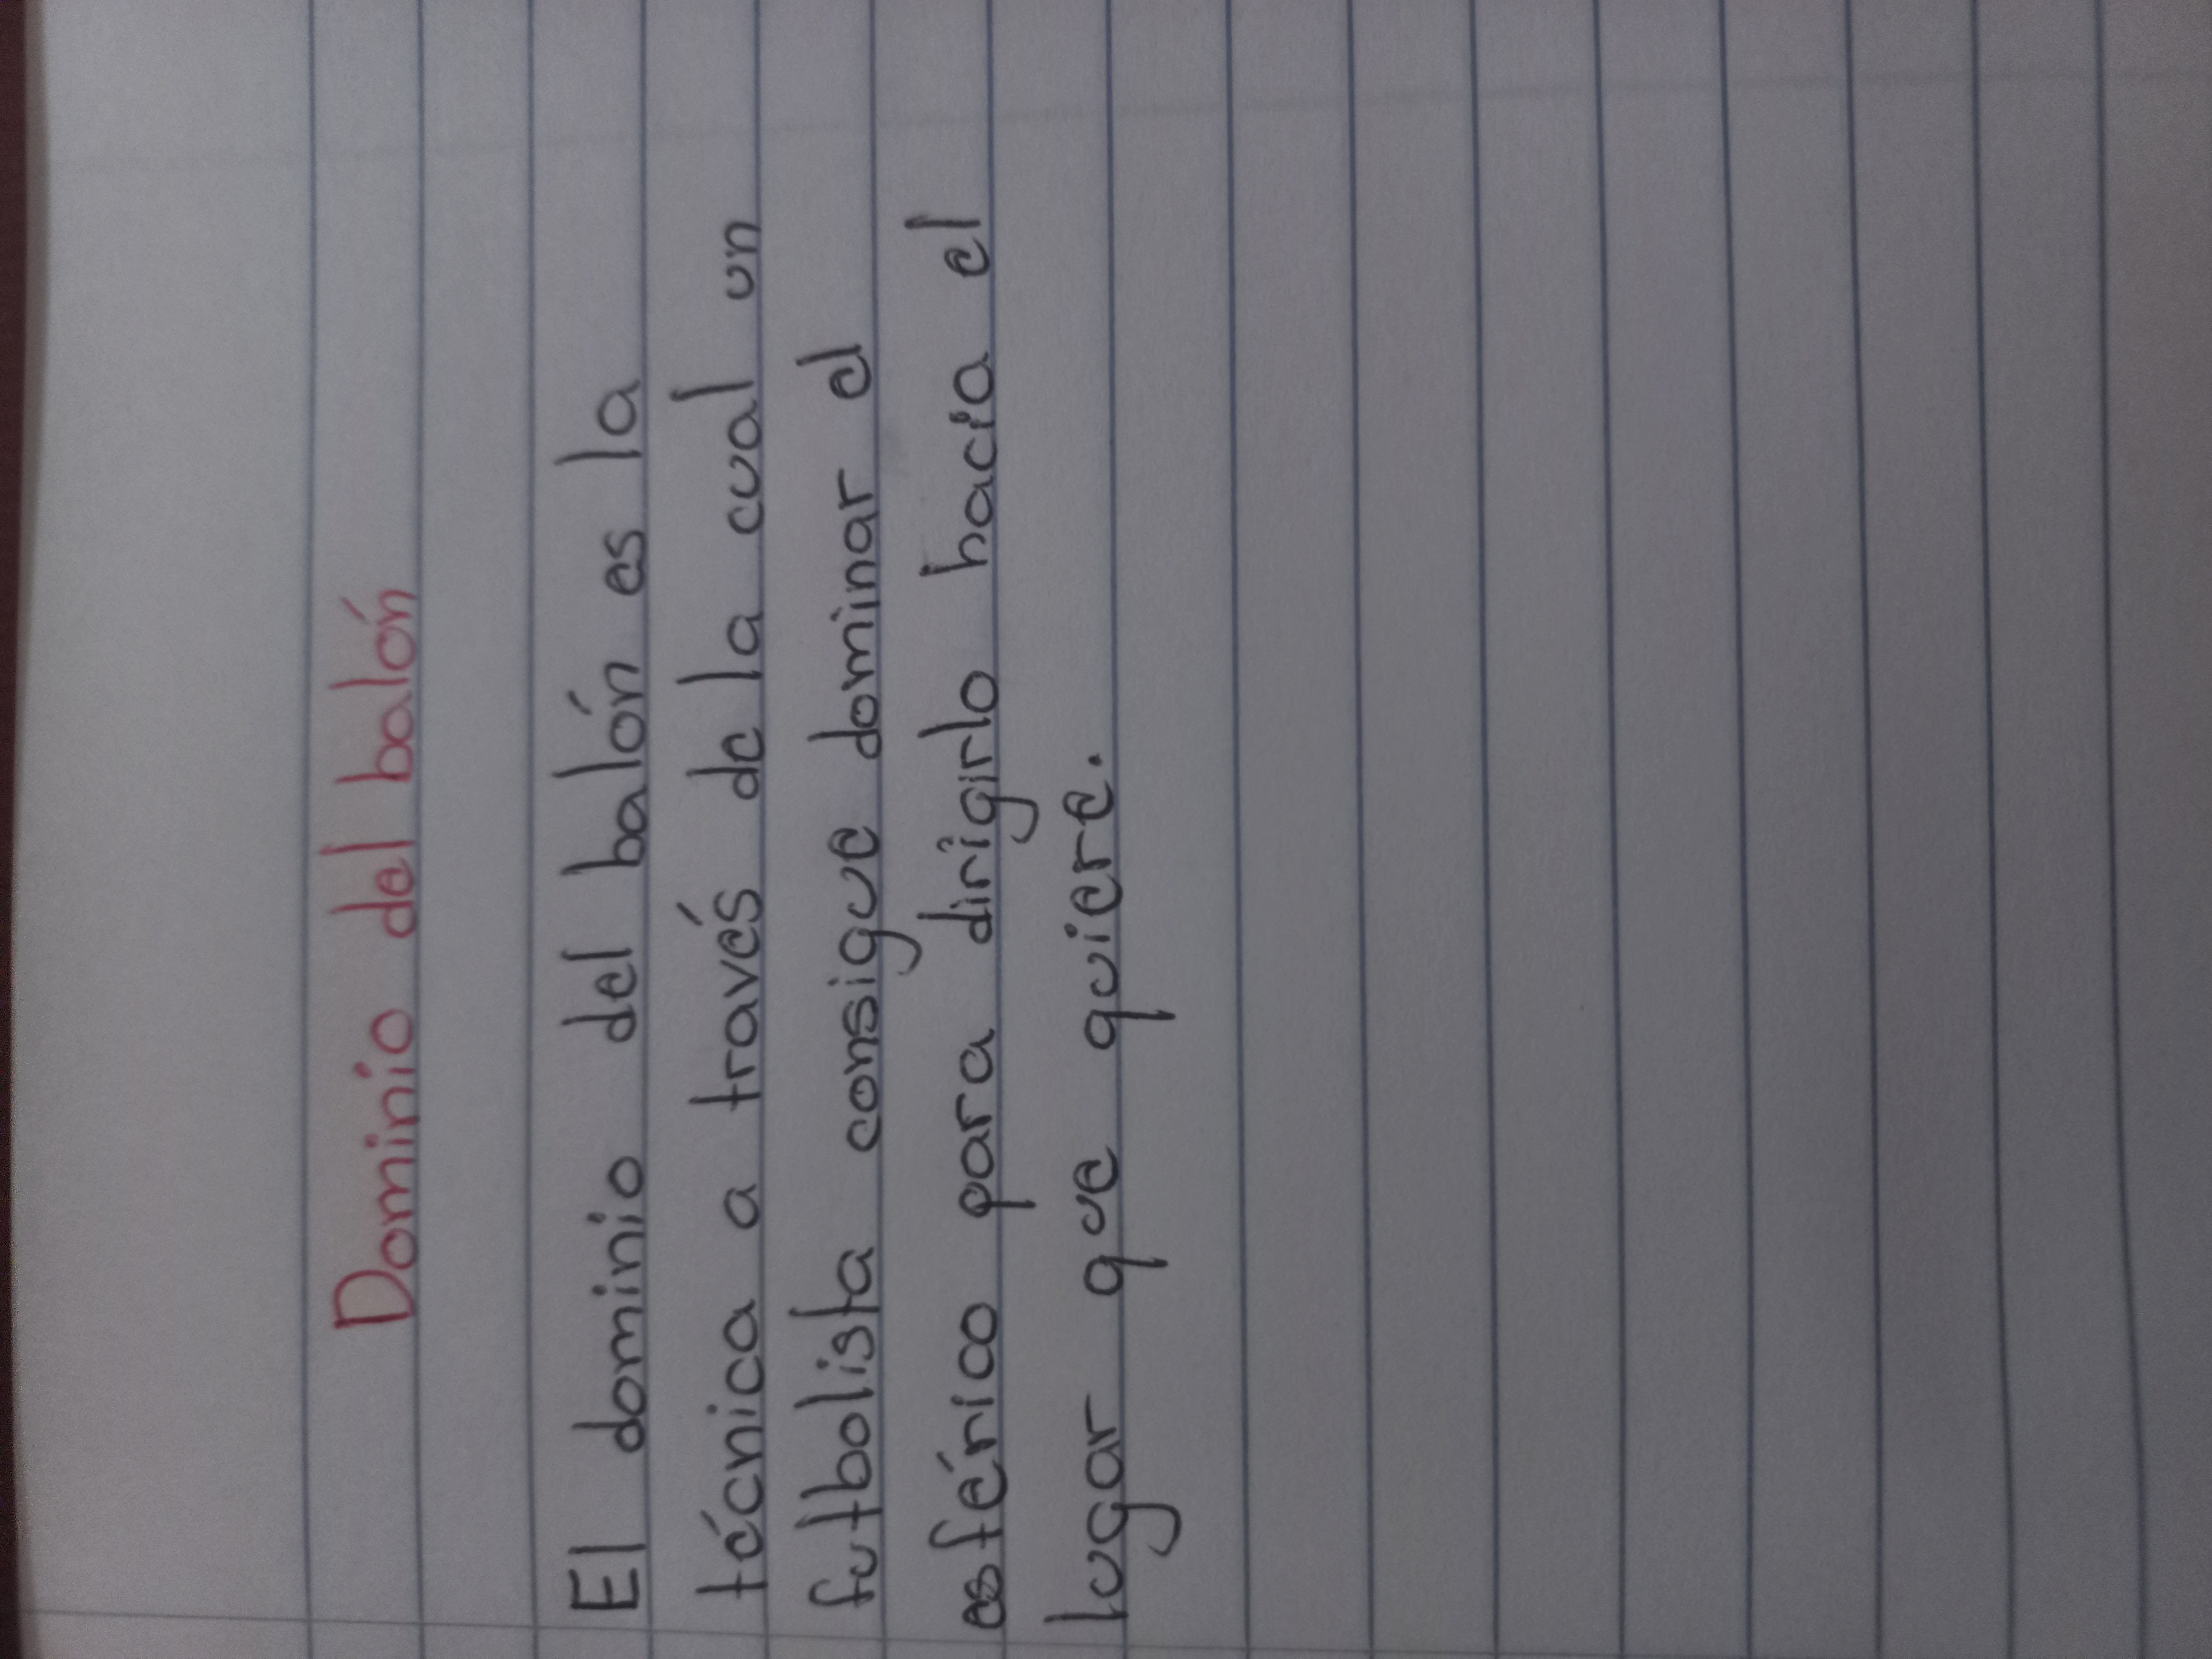 Dominio del balón
El dominio del balón es la
técnica a través de la cual un
futbolista consigue dominar el
esférico para dirigirlo hacia el
lugar que quiere.